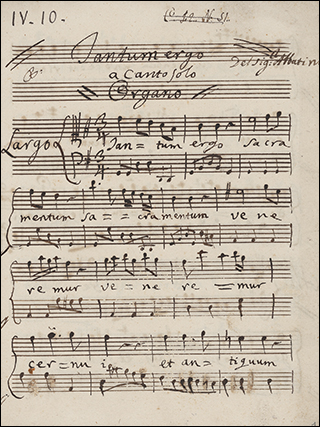 IV. 10.
Tantum ergo
a Canto solo
Del Sig.
Organo
Largo
Tan= tum ergo sacra
mentum sa= = cramentum ve ne
re mur ve= ne re =mur
cer=nu i et an= tiquum